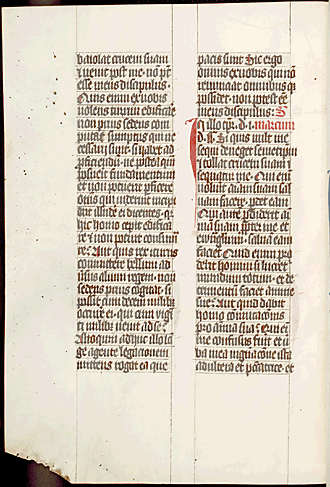 baiolat crucem suam
& uenit post me· nō pōt
esse meus discipulus·
Quis enim ex uobis
uolens turrim edificare
non prius sedens com
putat sumptus qui ne
cessarii sunt· si habet ad
pficiendū· ne postea
posuerit fundamentum
et non potuerit pficere
oms qui uident incipi
ant illudere ei dicentes· qr
hic homo cepit edifica
re & non potuit
re? Aut quis rex iturus
committere bellum ad
alium regem· non
sedens prius cogitat· si
possit cum decem milibus
ei· qui cum
ti milibus uenit ad se?
Alioquin adhuc illo lon
ge agente legationem
mittens rogat ea que
pacis sunt Sic ergo
omnis ex uobis qui nō
renunciat omnibus q
possidet· non potest eē
meus discipulus· S
illo marcum
Si quis uult me
sequi deneget semetipm
& tollat crucem suam &
sequatur me· Qui enī
uoluerit animā suam sal
uam facere· pdet eam·
Qui aute pdiderit ai
mā suam ppter me et
euuāglium· saluā eam
faciet Quid enim pro
derit homini si lucret
mundum totum· et de
trimentū faciet anime
sue? Aut quid dabit
homo cōmutacōnis
pro anima sua? Qui ei
me confusus fuit et u
ba mea in gnacōne ista
adultera et pccatrice· et